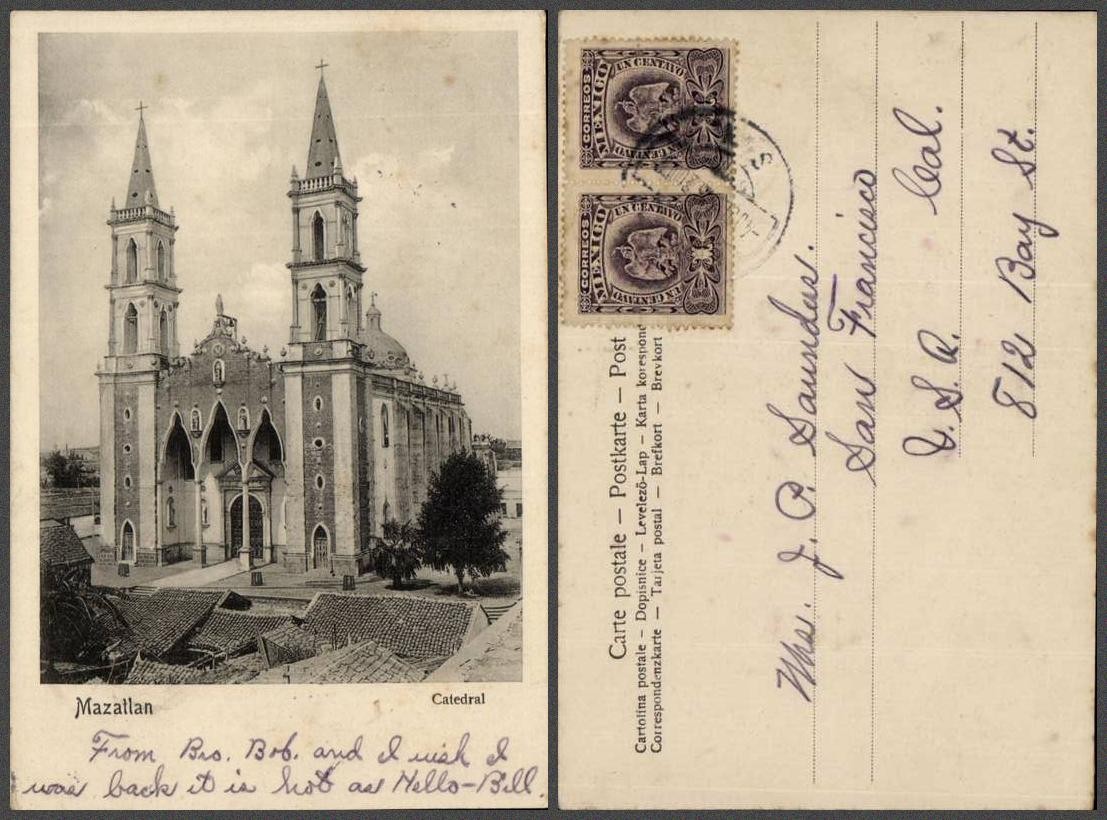 Mazatlan
Catedral
From Bro. Bob. and I wish I
was back it is hot as Hello-Bill.
CORREOS
MEXICO
UN CENTAVO
UN CENTAVO
CORREOS
MEXICO
UN CENTAVO
UN CENTAVO
Carte postale — Postkarte — Post
Cartolina postale — Dopisnice — Levelező-Lap — Karta korespond
Correspondenzkarte — Tarjeta postal — Brefkort — Brevkort
Mrs. J. P. Saundus.
San Francisco
U. S. A. Cal.
812 Bay St.